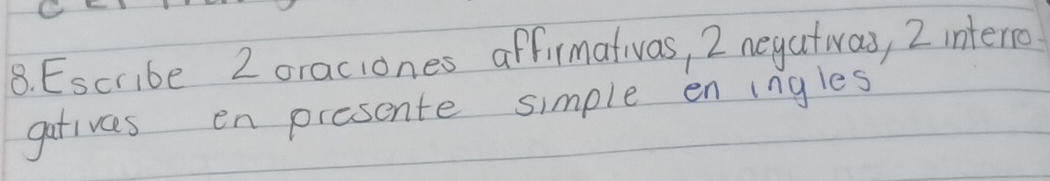 8. Escribe 2 oraciones affirmativas, 2 negativas, 2 interro-
gativas en presente simple en ingles